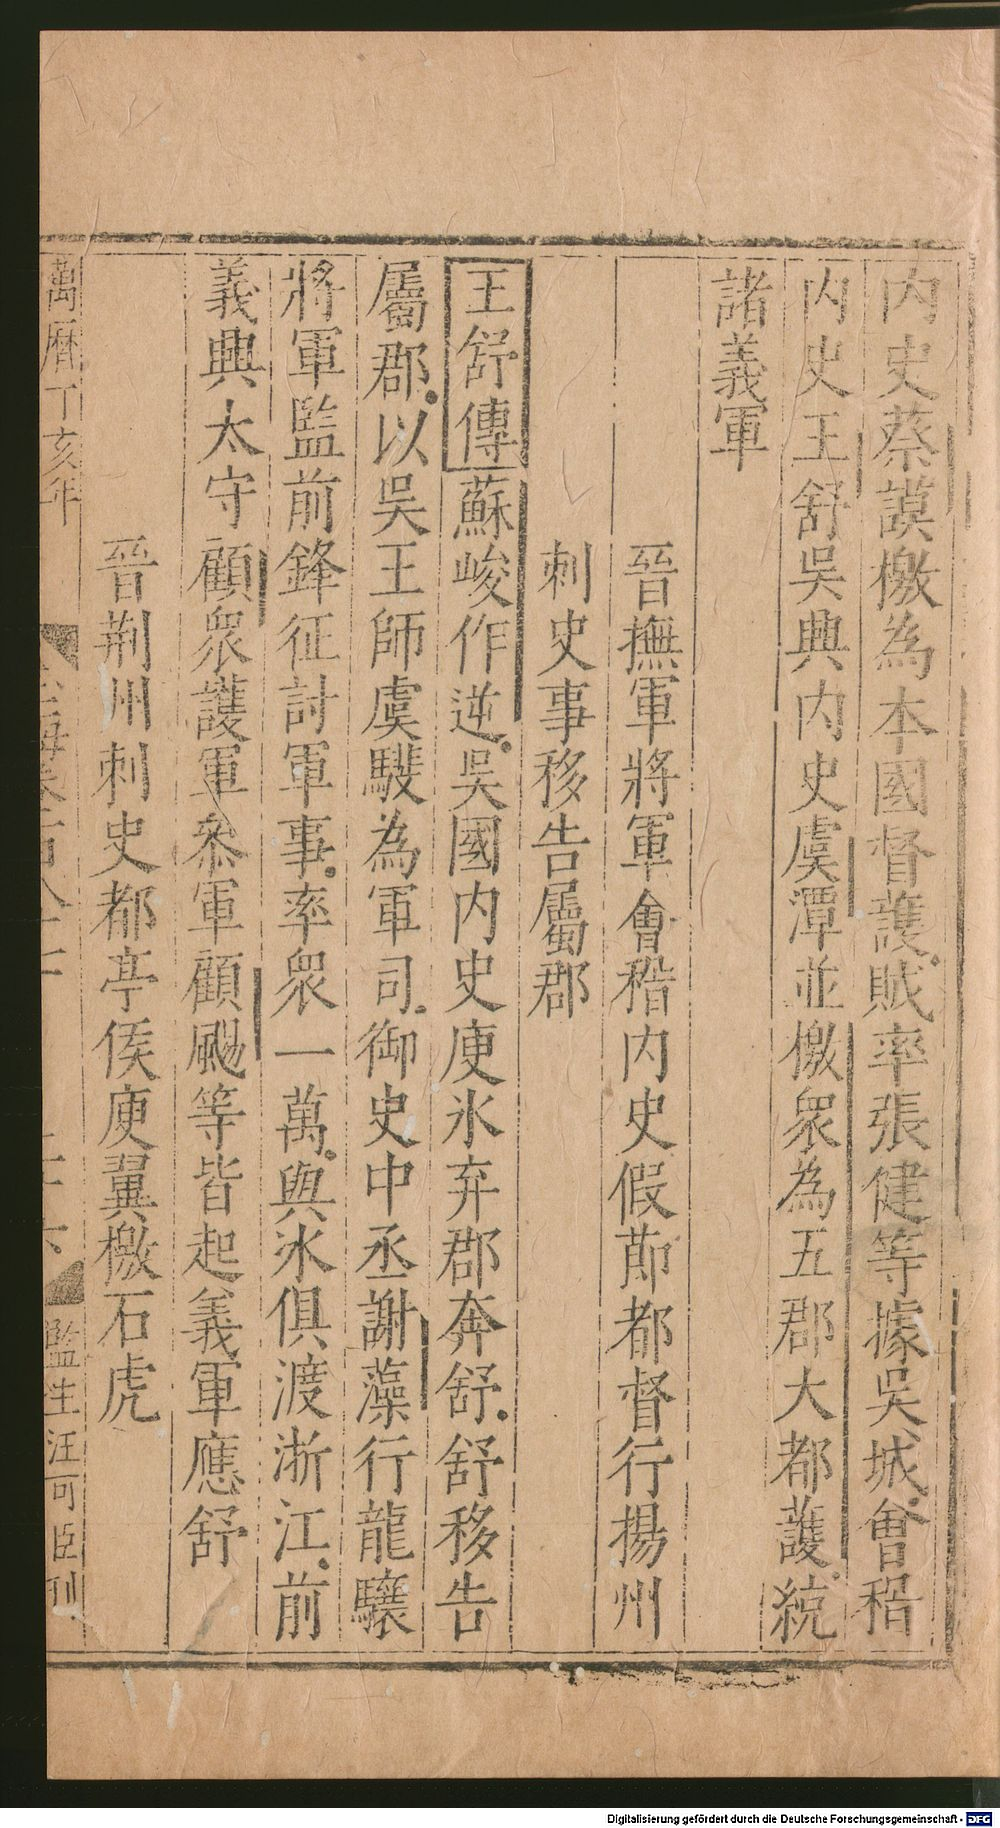 内史蔡謨檄為本國督護賊率張健等據吳城會稽
内史王舒吳興内史虞潭並檄衆為五郡大都護統
諸義軍
晉撫軍將軍會稽内史假節都督行揚州
刺史事移告屬郡
王舒傳蘇峻作逆吳國内史庾氷弃郡奔舒舒移告
屬郡以吳王師虞騑為軍司御史中丞謝藻行龍驤
將軍監前鋒征討軍事率衆一萬與氷俱渡浙江前
義興太守顧衆護軍叅軍顧颺等皆起義軍應舒
晉荆州刺史都亭侯庾翼檄石虎
萬曆丁亥年
二十六
監生汪可臣刊
Digitalisierung gefördert durch die Deutsche Forschungsgemeinschaft - DFG